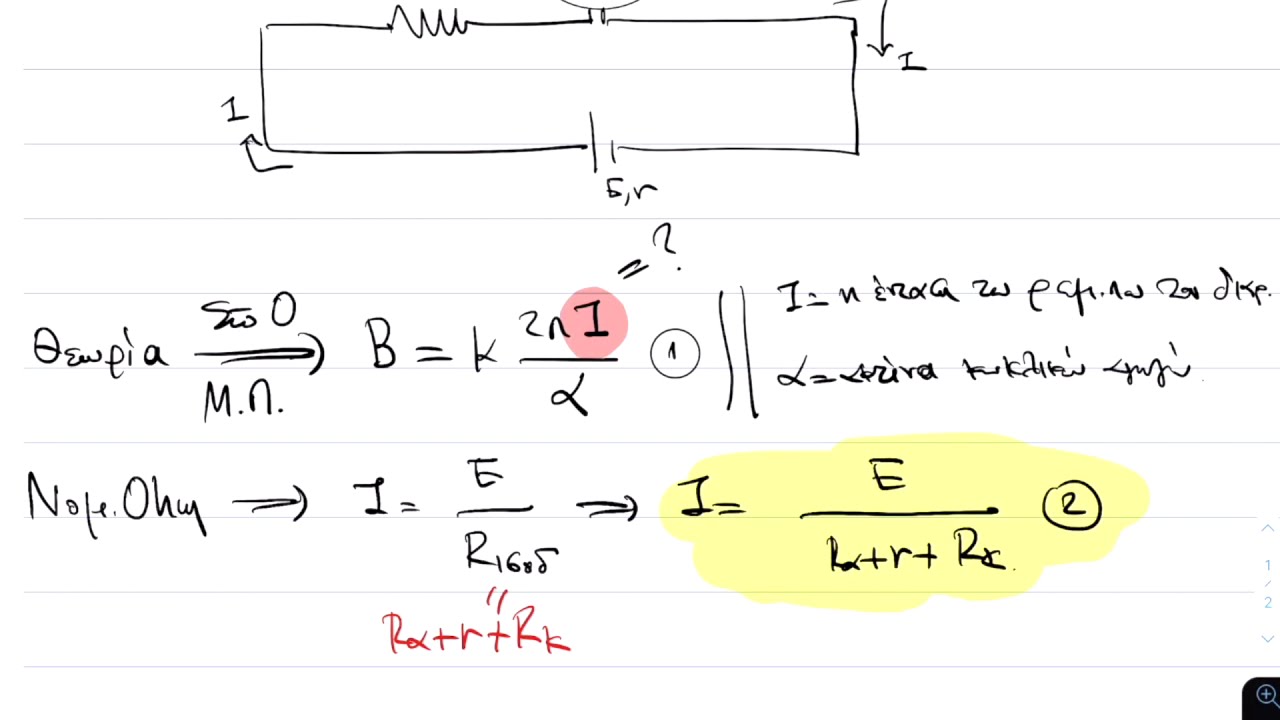 I
I
E, r
= ?
Θεωρία στο Ο Μ.Π. ⟹ B = k 2πI / α ①
I = η ένταση του ρεύμ. που τον διαρ.
α = ακτίνα κυκλικού αγωγού
Νομ. Ohm ⟹ I = E / Rισοδ ⟹ I = E / Rα+r+Rκ ②
"
Rα+r+Rκ
1
/
2